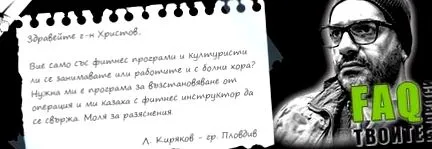 Здравейте г-н Христов,
Вие само със фитнес програми и културисти
ли се занимавате или работите и с болни хора?
Нужна ми е програма за възстановяване от
операция и ми казаха с фитнес инструктор да
се свържа. Моля за разяснения.
Л. Киряков - гр. Пловдив
FAQ
ТВОИТЕ